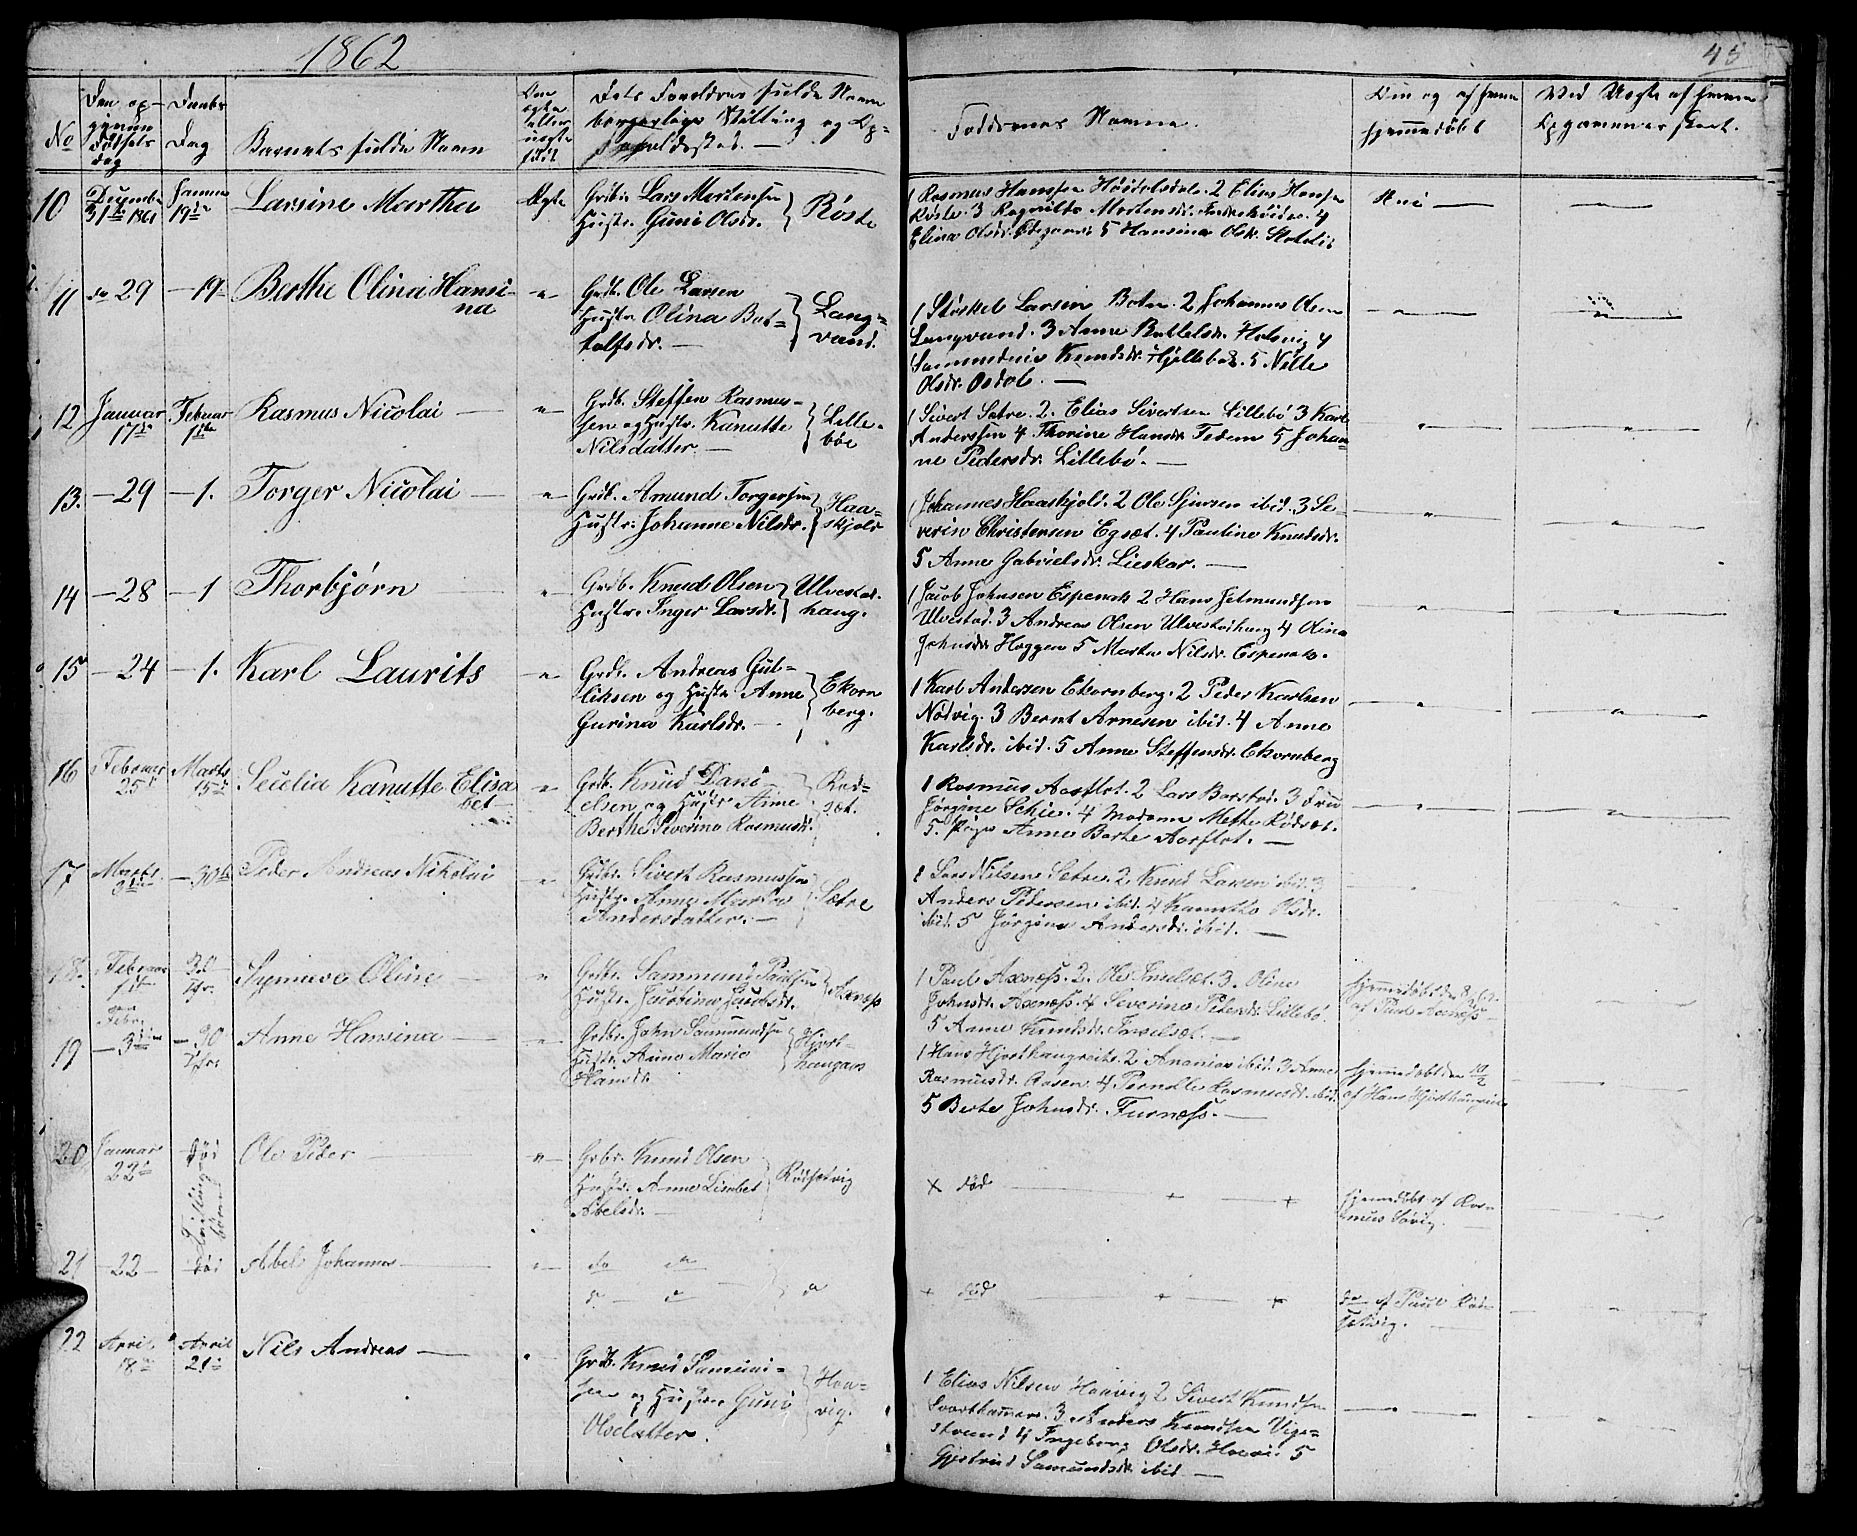 1862
45
No
Den op-
givne
Fødsels
dag
Daabs
Dag
Barnets fulde Navn
Om
ægte
eller
uægte
født
Dets Forældres fulde Navn
borgerlige Stilling og Op-
holdssted.
Faddernes Navne.
hjemmedøbt
10
Decembr
31te 1861
Januar
19de
Larsine Martha
Ægte
Grdbr. Lars Mortensen
Hustr. Guni Olsdr.
Røste
1 Rasmus Hanssen Høidalsdale. 2 Elias Hansen
Røste. 3 Ragnilde Mortensdr. 4
Elina Olsdr. 5 Hansine Olsdr.
Nei
11
do 29
19
Berthe Olina Hansi-
na
Grdb. Ole Larsen
Hustr. Olina Bot-
tolfsdr.
Lang-
vand.
1 Størkel Larsen Botn. 2 Johannes Olsen
Langvand. 3 Anne 4
5 Nille
Olsdr. Osdal.
12
Januar
17de
Februar
1ste
Rasmus Nicolai
Grdb. Steffen Rasmus-
sen og Hustr. Kanutte
Nilsdatter.
Lille-
bøe
1 Sivert Sætre. 2. Elias Sivertsen Lillebø 3 Karl
Anderssen 4 Thorine Hansdr. 5 Johan-
ne Pedersdr. Lillebø.
13.
29
1.
Torger Nicolai
Grdb. Amund Torgersen
Hustr. Johanne Nilsdr.
Haa-
skjold
1 Johannes Haaskjold. 2 Ole Sjursen ibid. 3 Se-
verin Christensen Egset. 4 Pauline Knudsdr.
5 Anne Gabrielsdr. Lieskar.
14
28
1
Thorbjørn
Grdb. Knud Olsen
Hustr. Inger Larsdr.
Ulvestad-
haug.
1 Jacob Johnsen Espenak 2 Hans Jetmundsen
Ulvestad. 3 Andreas Olsen Ulvestadhaug 4 Olina
Johnsdr. Haggen 5 Marta Nilsdr. Espenak.
15
24
1.
Karl Laurits
Grdb. Andreas Gul-
liksen og Hustr. Anne
Gurina Karlsdr.
Ekorn
berg.
1 Karl Andersen Ekornberg. 2 Peder Karlsen
Nødvig. 3 Bernt Arnesen ibid. 4 Anne
Karlsdr. ibid. 5 Anne Steffensdr. Ekornberg
16
Februar
25de
Marts
15de
Secelia Kanutte Elisa
bet
Grdb. Knud Dani-
elsen og Hustr. Anne
Berthe Severine Rasmusdr.
Rød-
sæt.
1 Rasmus Aarflot. 2 Lars Barstad. 3 Fru
Jørgine Schie. 4 Madame Mette Rødset.
5. Pige Anne Berte Aarflot.
17
Marts
9de
30te
Peder Andreas Nikolai
Grdbr. Sivert Rasmussen
Hustr. Anne Marta
Andersdatter.
Sætre
1 Lars Nilsen Sætre. 2. Knud Larsen ibid. 3
Anders Pedersen ibid. 4 Kanutte Olsdr.
ibid. 5 Jørgine Andersdr. ibid.
18.
Februar
1ste
30
Synneve Oline
Grdbr. Sammund Paulsen
Hustr. Jacobine Jacobsdr.
Axnæss
1 Paul Axnæss. 2. Ole 3. Oline
Johnsdr. Axnæss. 4 Severine Petersdr. Lillebø.
5 Anne Knudsdr.
Hjemmedøbt den
af Paul Axnæss
19
Febr.
3die
30
Anne Hansina
Grdbr. John Sammundsen
Hustr. Anne Marie
Hansdr.
Hjort-
haugøen
1 Hans Hjorthaugreite. 2 Ananias ibid. 3 Anne
Rasmusdr. Aasen. 4 Pernille Rasmusdr. ibid.
5 Berte Johnsdr. Furnæss.
Hjemmedøbt den 10/2
af Hans Hjorthaugreite
20
Januar
22de
Død
Tvilling
børn
Ole Peder
Grbr. Knud Olsen
Hustr. Anne Lisabet
Abelsdr.
Rødsetvig
× død + +
Hjemmedøbt af Ras-
mus Søvig.
21
22
Død
Abel Johannes
do do
do do
do
+ død + +
do af Paul Rød-
setvig.
22
April
18de
April
21de
Nils Andreas
Grdb. Knud
sen og Hustru Guni
Olsdatter.
Haa-
vig.
1 Elias Nilsen Haavig 2 Sivert Knudsen
Svarthamar. 3 Anders Knudsen Vige-
strand 4 Ingeborg Olsdr. 5
Gjertrud Samundsdr. ibid